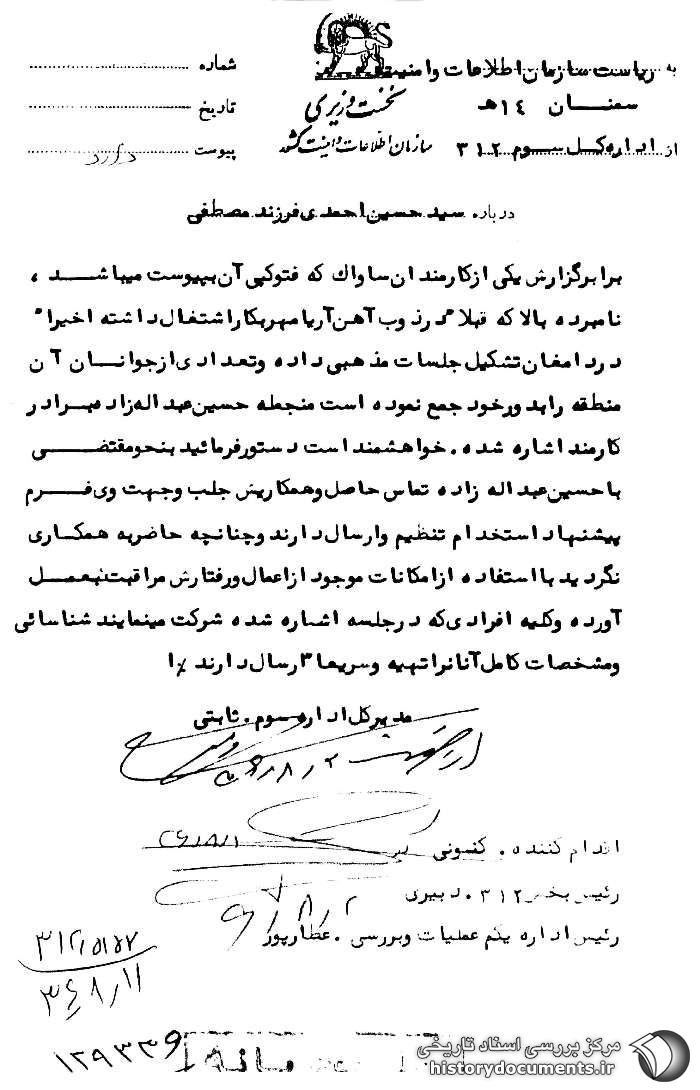 به ریاست سازمان اطلاعات و امنیت
سمنــان ۱۴ هـ
از اداره کـل سـوم ۳۱۲
نخست وزیری
سازمان اطلاعات و امنیت کشور
شماره
تاریخ
پیوست دارد
درباره سید حسین احمدی فرزند مصطفی
برابر گزارش یکی از کارمندان ساواک که فتوکپی آن بپیوست میباشد ،
نامبرده بالا که قبلا" در ذوب آهن آریامهر بکار اشتغال داشته اخیرا"
در دامغان تشکیل جلسات مذهبی داده و تعدادی از جوانان آن
منطقه را بدور خود جمع نموده است منجطه حسین عبداله زاده برادر
کارمند اشاره شده . خواهشمند است دستور فرمائید بنحو مقتضی
با حسین عبداله زاده تماس حاصل و همکاریش جلب و جهت وی فرم
پیشنهاد استخدام تنظیم و ارسال دارند و چنانچه حاضر به همکاری
نگردید با استفاده از امکانات موجود از اعمال و رفتارش مراقبت بعمل
آورده و کلیه افرادی که در جلسه اشاره شده شرکت مینمایند شناسائی
و مشخصات کامل آنانرا تهیه و سریعا" ارسال دارند /ا
مدیر کل اداره سوم . ثابتی
اقدام کننده .
رئیس بخش ۳۱۲ . دبیری
رئیس اداره یکم عملیات و بررسی . عطارپور
۱۲۹۳۳۶
مرکز بررسی اسناد تاریخی
historydocuments.ir